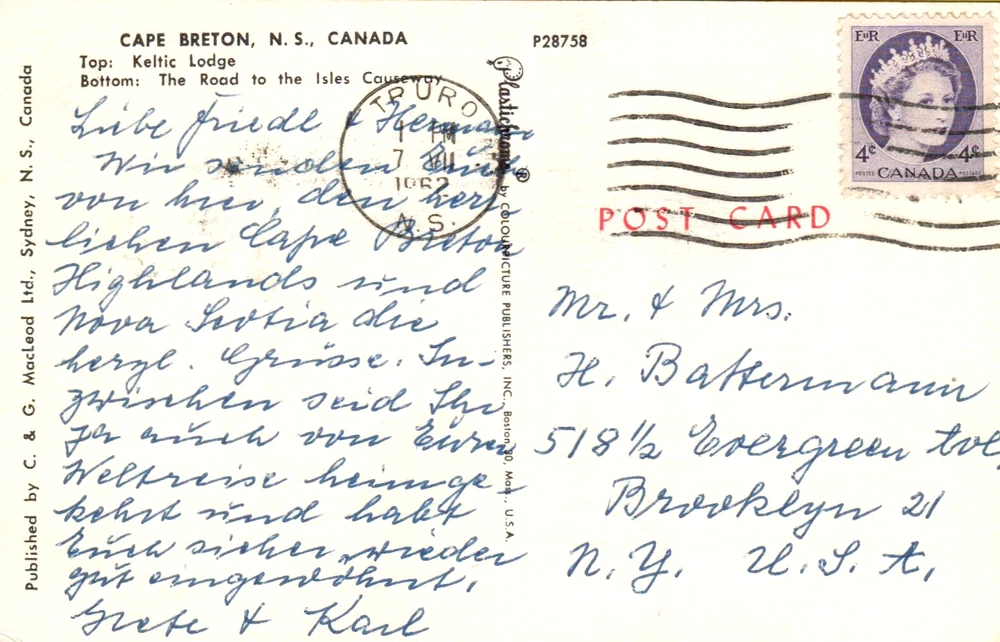 CAPE BRETON, N. S., CANADA
Top: Keltic Lodge
Bottom: The Road to the Isles Causeway
P28758
Liebe Friedl & Hermann
Wir senden Euch
von hier, den herr
lichen Cape Breton
Highlands und
Nova Scotia die
herzl. Grüsse. In-
zwischen seid Ihr
ja auch von Eurer
Weltreise heimge
kehrt und habt
Euch sicher wieder
gut eingewöhnt.
Grete & Karl
Published by C. & G. MacLeod Ltd., Sydney, N. S., Canada
Plastichrome ® by COLOURPICTURE PUBLISHERS, INC., Boston 30, Mass., U.S.A.
TRURO
PM
7 VII
1962
N. S.
EIIR EIIR
4¢ 4¢
POSTES CANADA POSTAGE
POST CARD
Mr. & Mrs.
H. Battermann
518 1/2 Evergreen Ave
Brooklyn 21
N. Y. U. S. A.